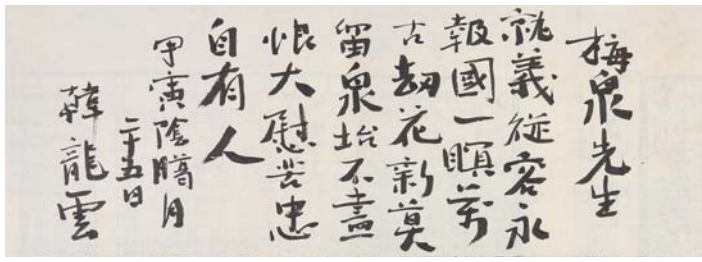 梅泉先生
就義從容永
報國一瞑萬
古刼花新莫
留泉坮不盡
恨大慰苦忠
自有人
甲寅陰臈月
二十五日
韓龍雲